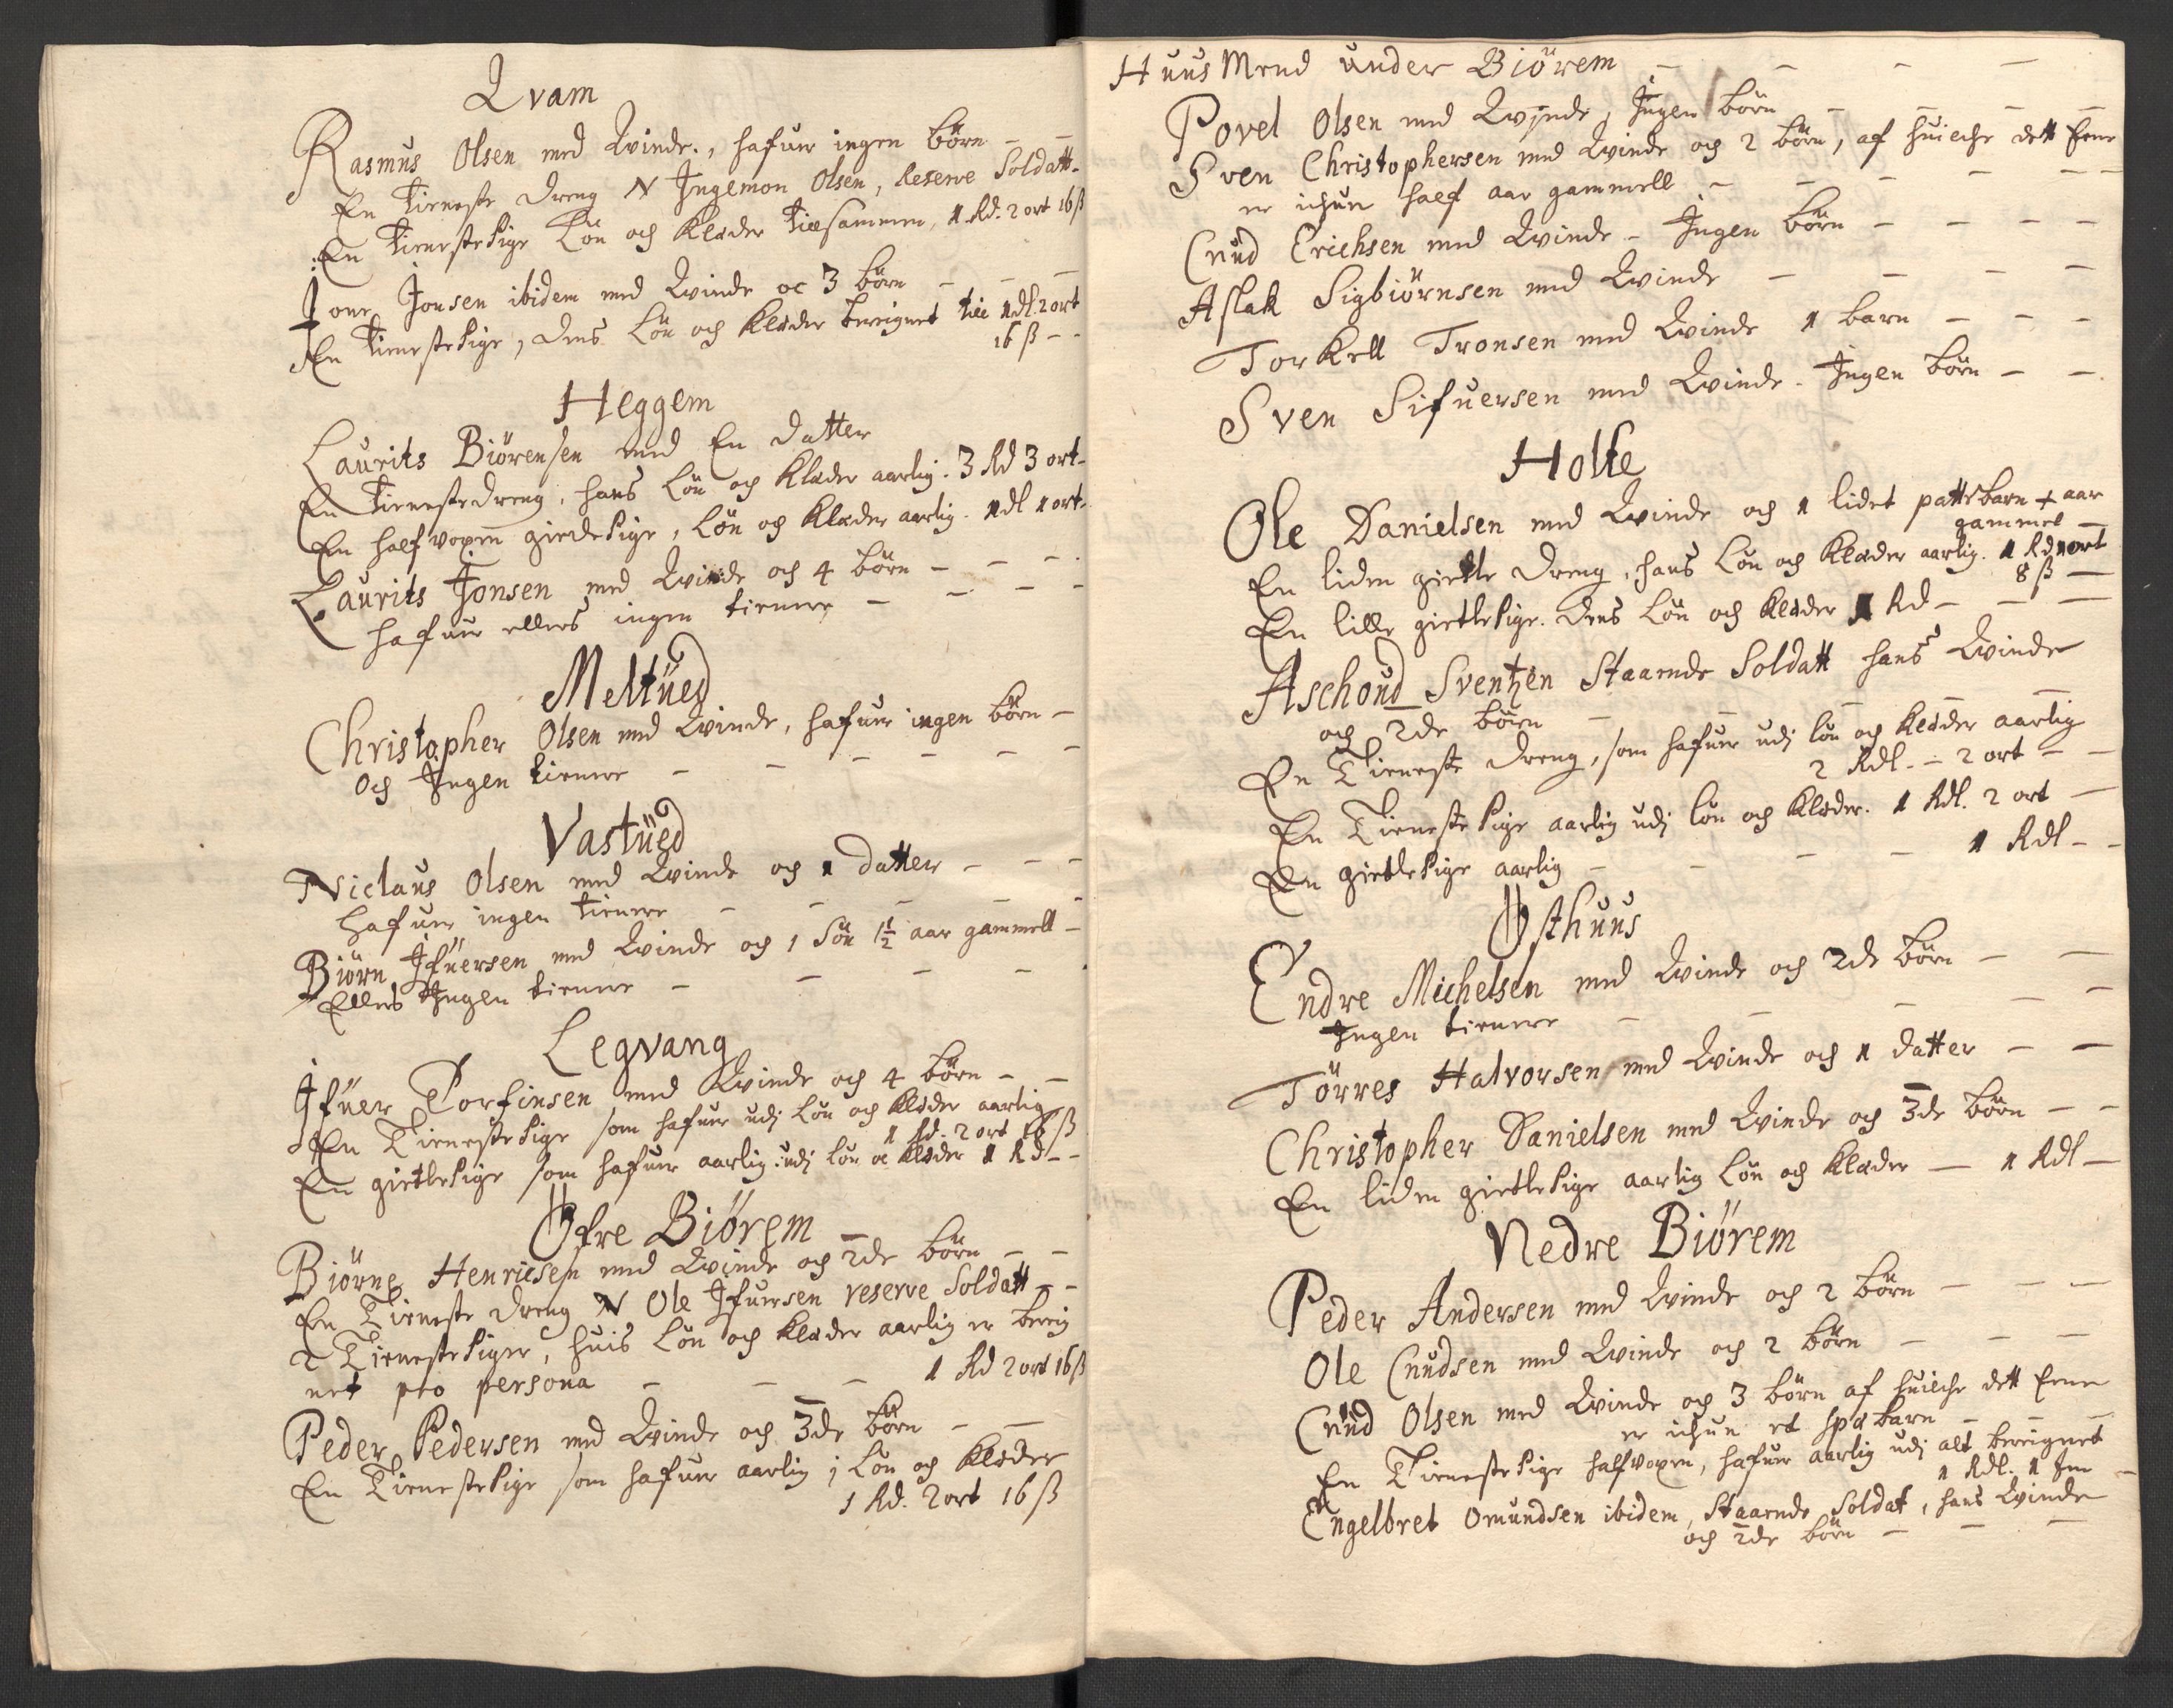 Qvam
Rasmus Olsen med Qvinde, hafuer ingen børn –
En tieneste dreng N Ingemon Olsen, Reserve Soldatt -
En tieneste Pige Løn och Klæder tilsammen, 1 Rd. 2 ort 16 ß
Jone Jonsen ibidem med Qvinde oc 3 børn – – –
En tieneste Pige, dens Løn och Klæder bereignet till 1 dl. 2 ort
16 ß – -
Heggem
Laurits Biörensen med En datter
En tieneste dreng, hans Løn och Klæder aarlig. 3 Rd 3 ort -
En halfvoxen giede Pige, Løn og Klæder aarlig. 1 dl 1 ort -
Laurits Jonsen med Qvinde och 4 børn – – -
hafuer ellers ingen tienere – – – -
Meltüed
Christopher Olsen med Qvinde, hafuer ingen børn –
Och Ingen tienere – – – – – –
Vastüed
Niclaus Olsen med Qvinde och 1 datter – – -
hafuer ingen tienere – – – – -
Biörn Ifuersen med Qvinde och 1 Søn 1½ aar gammell –
Ellers Ingen tienere – – – –
Legvang
Ifuer Torfinsen med Qvinde och 4 børn – –
En Tieneste Pige som hafuer udj Løn och Klæder aarlig
1 Rd. 2 ort 16 ß
En giettle Pige som hafuer aarlig udj Løn oc Klæder 1 Rd – -
Öfre Biörem
Biörne Henricsen med Qvinde och 2de børn – –
En Tieneste dreng N Ole Ifuersen reserve Soldatt – -
2 Tieneste Piger, huis Løn och Klæder aarlig er bereig
net pro persona – – – 1 Rd 2 ort 16 ß
Peder Pedersen med Qvinde och 3de børn – –
En Tieneste Pige som hafuer aarlig j Løn och Klæder
1 Rd. 2 ort 16 ß
Huus Mend under Biörem – – – –
Povel Olsen med Qvinde, Ingen børn – – – –
Sven Christophersen med Qvinde och 2 børn, af huilche dett Eene
er ichun half aar gammell – – – – – -
Cnüd Erichsen med Qvinde – Ingen børn – – – –
Aslak Sigbiörnsen med Qvinde – – – –
Torkell Tronsen med Qvinde 1 barn – – -
Sven Sifuersen med Qvinde – Ingen børn – – .
Holte
Ole Danielsen med Qvinde och 1 lidet pattebarn + aar
gammel –
En liden giettle dreng, hans Løn och Klæder aarlig. 1 Rd 1 ort
8 ß –
En lille giettle Pige. dens Løn och Klæder 1 Rd – – –
Aschoud Sventzen Staaende Soldatt hans Qvinde
och 2de børn – – – –
En Tieneste dreng, som hafuer udj løn och Klæder aarlig
2 Rdl. – 2 ort – –
En Tieneste Pige aarlig udj løn och Klæder. 1 Rdl. 2 ort –
En giettle Pige aarlig – – – – 1 Rdl – -
Østhuus
Endre Michelsen med Qvinde och 2de børn – –
Ingen tienere – – – – –
Törres Halvorsen med Qvinde och 1 datter – –
Christopher Danielsen med Qvinde och 3de børn – -
En liden giettle Pige aarlig Løn och Klæder – 1 Rdl –
Nedre Biörem
Peder Andersen med Qvinde och 2 børn – – –
Ole Cnudsen med Qvinde och 2 børn – – –
Cnüd Olsen med Qvinde och 3 børn af huilche dett Eene
er ichun et spæ barn – – –
En Tieneste Pige halfvoxen, hafuer aarlig udj alt bereignet
1 Rdl. 1 –
Engelbret Omundsen ibidem, Staaende Soldat, hans Qvinde
och 2de børn – – –